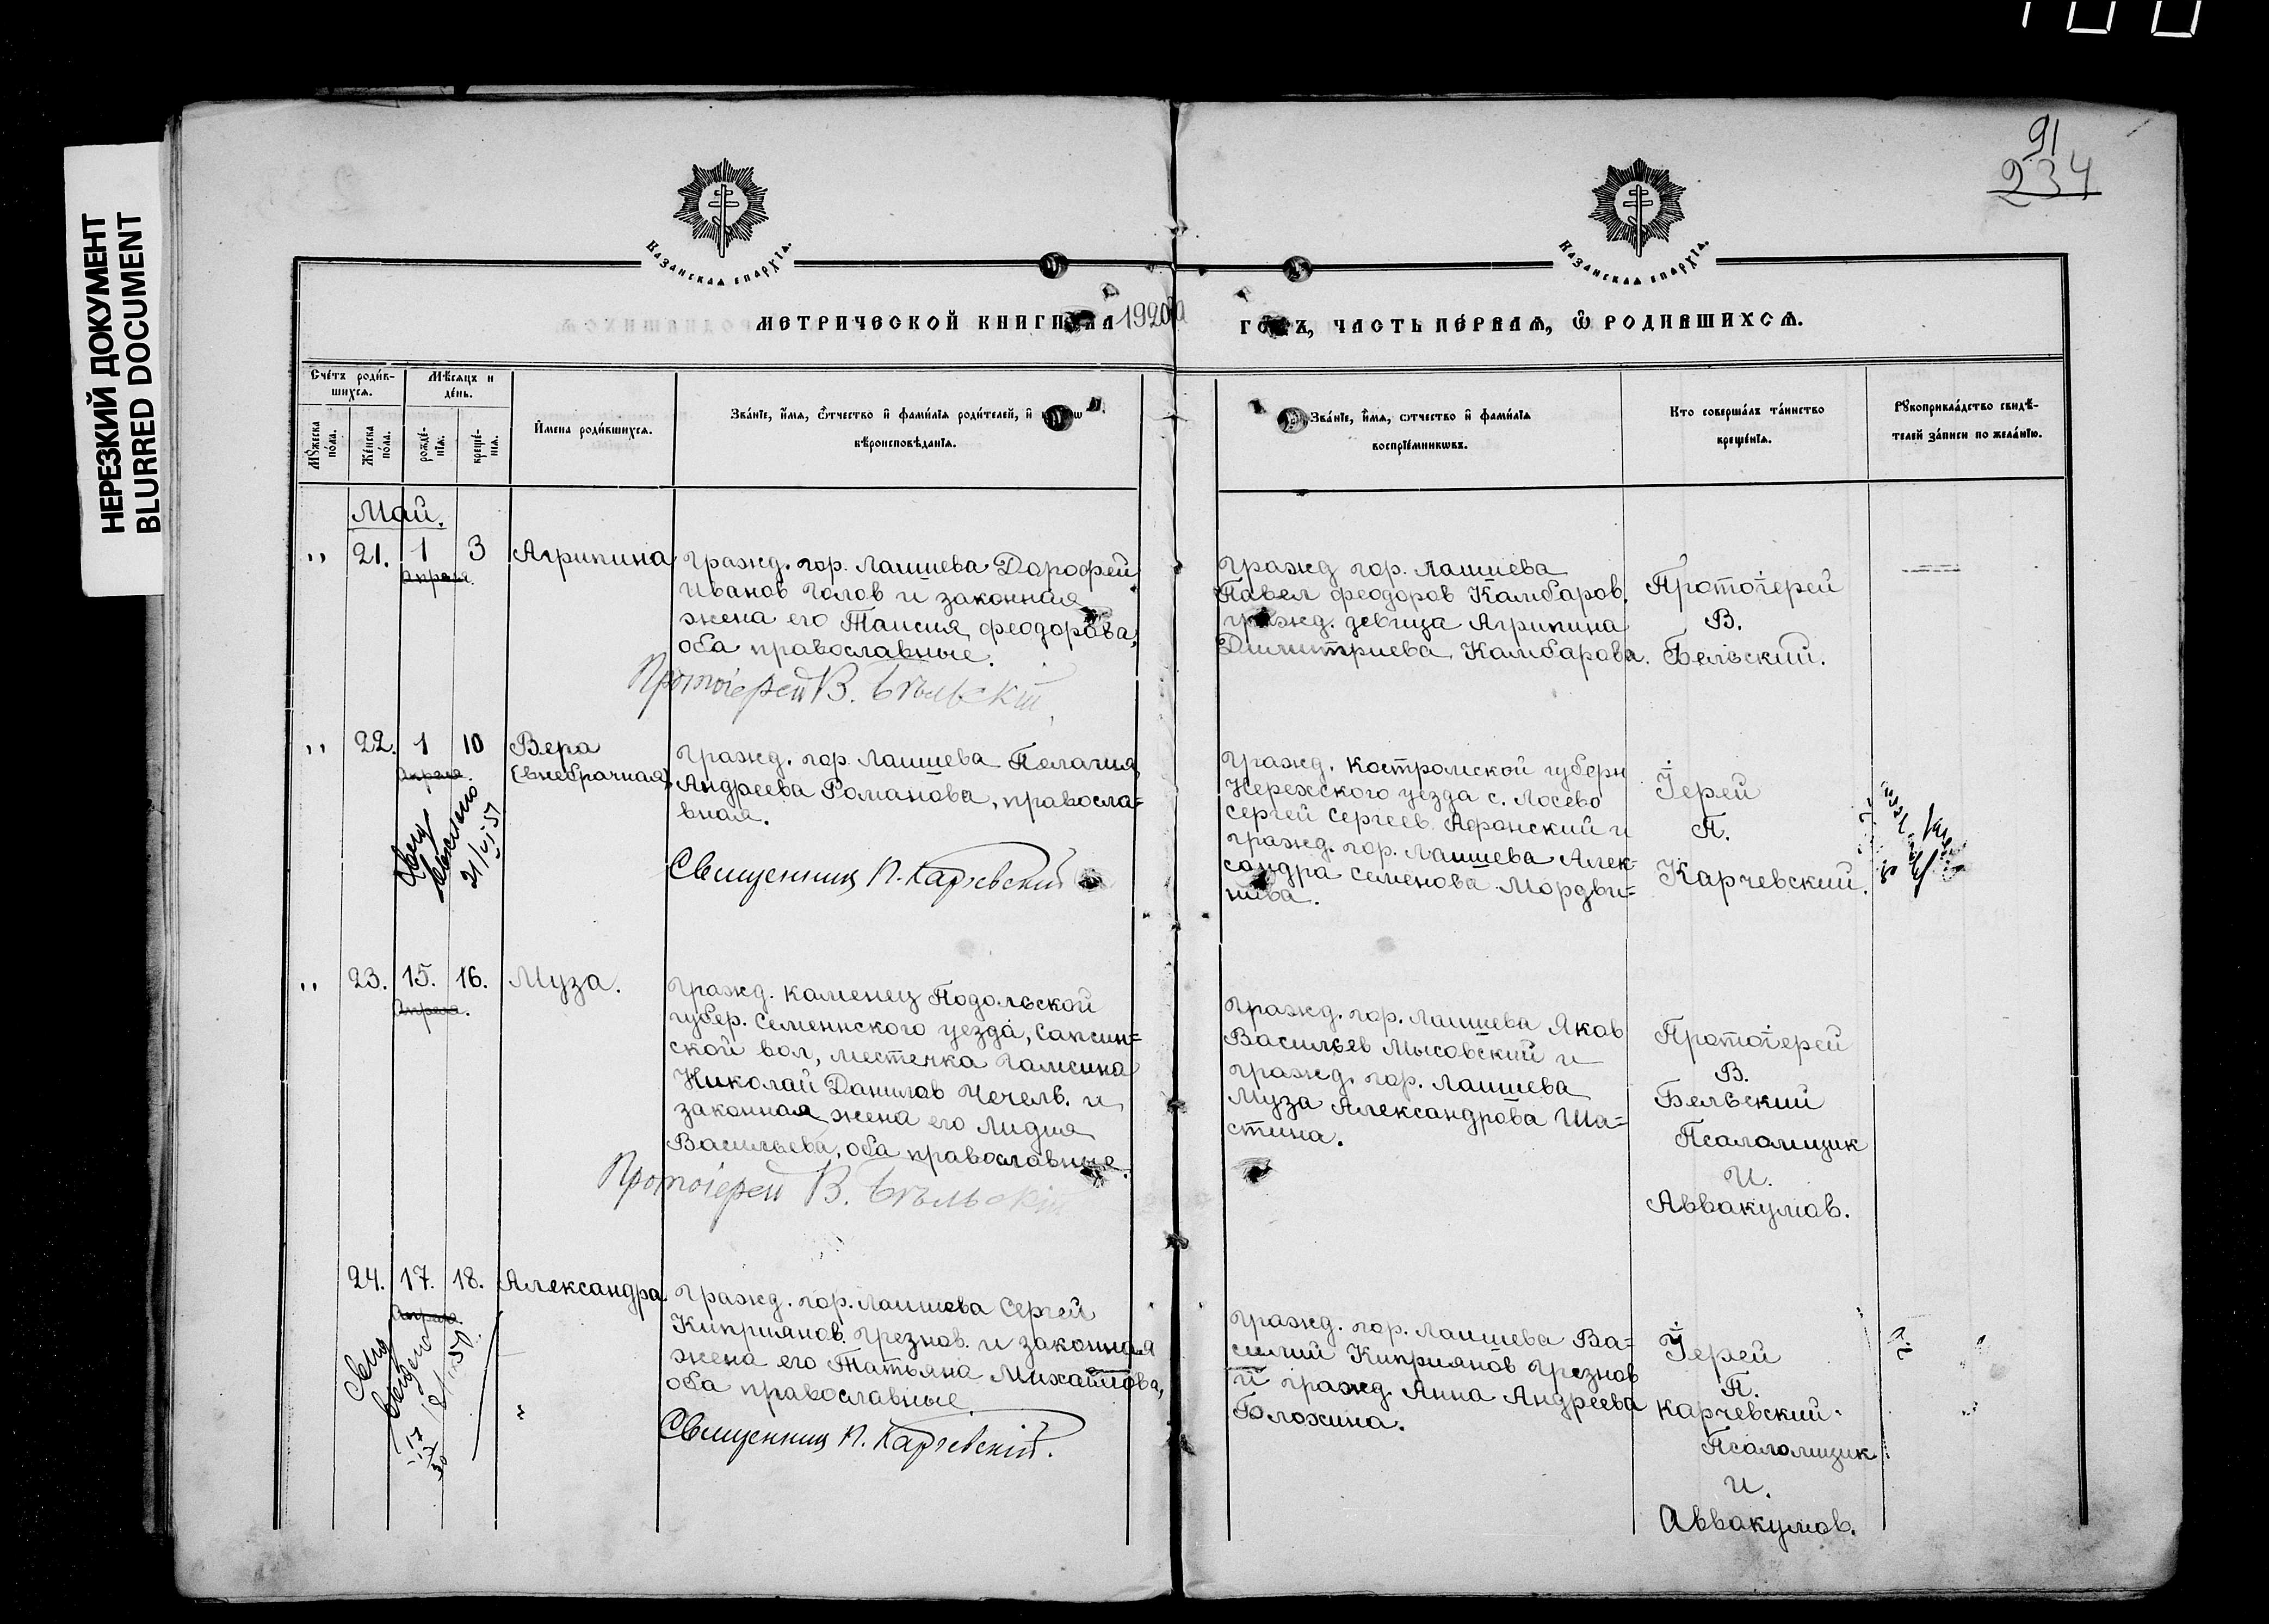 НЕРЕЗКИЙ ДОКУМЕНТ
BLURRED DOCUMENT
91
234
КАЗАНСКАѦ ЕПАРХІѦ.
КАЗАНСКАѦ ЕПАРХІѦ.
МЕТРИЧЕСКОЙ КНИГИ НА 1920й
ГОДЪ, ЧАСТЬ ПЕ́РВАѦ, Ѽ РОДИВШИХСѦ.
Сче́тъ роди́в-
шихсѧ.
Мѣ́сѧцъ и
де́нь.
Мꙋ́жеска
по́ла.
Же́нска
по́ла.
рожде́-
нїѧ.
креще́-
нїѧ.
И҆мена роди́вшихсѧ.
Зва́нїе, и҆́мѧ, ѻ҆́тчество и҆ фами́лїѧ роди́телей, и҆
вѣроисповѣ́данїѧ.
Зва́нїе, и҆́мѧ, ѻ҆́тчество и҆ фами́лїѧ
воспрїе́мникѡвъ.
Кто соверша́лъ та́инство
креще́нїѧ.
Рꙋкоприкла́дство свидѣ́-
телей за́писи по жела́нїю.
Май.
" 21. 1 3 Агрипина
Апреля.
Гражд. гор. Лаишева Дорофей
Иванов Голов и законная
жена его Таисия Феодорова,
оба православные.
Протоіерей В. Бѣльскій
Гражд гор. Лаишева
Павел Феодоров Камбаров.
Гражд. девица Агрипина
Димитриева Камбарова.
Протоіерей
В.
Бельский.
" 22. 1 10 Вера
Апреля. (внебрачная)
21/VI 51
Гражд. гор. Лаишева Пелагия
Андреева Романова, правосла=
вная.
Священник П. Карчевский
Гражд. Костромской губерн
Нережского уезда с. Лосево
Сергей Сергеев Афанский и
гражд. гор. Лаишева Алек=
сандра Семенова Мордви=
нова.
Іерей
П.
Карчевский.
" 23. 15. 16. Муза.
Апреля.
Гражд. Каменец Подольской
губер. Семеннского уезда, Сапсин=
ской вол, местечка Галисина
Николай Данилов Чечель. и
законная жена его Лидия
Васильева, оба православные.
Протоіерей В. Бѣльскій
Гражд. гор. Лаишева Яков
Васильев Мысовский и
гражд. гор. Лаишева
Муза Александрова Ша=
стина.
Протоіерей
В.
Бельский
Псаломщик
И.
Аввакумов.
24. 17. 18. Александра
Апреля.
Гражд. гор. Лаишева Сергей
Киприянов. Грезнов. и законная
жена его Татьяна Михайлова,
оба православные.
Священник П. Карчевскій.
Гражд. гор. Лаишева Ва=
силий Киприянов Грезнов
и гражд. Анна Андреева
Блохина.
Іерей
П.
Карчевский.
Псаломщик
И.
Аввакумов.